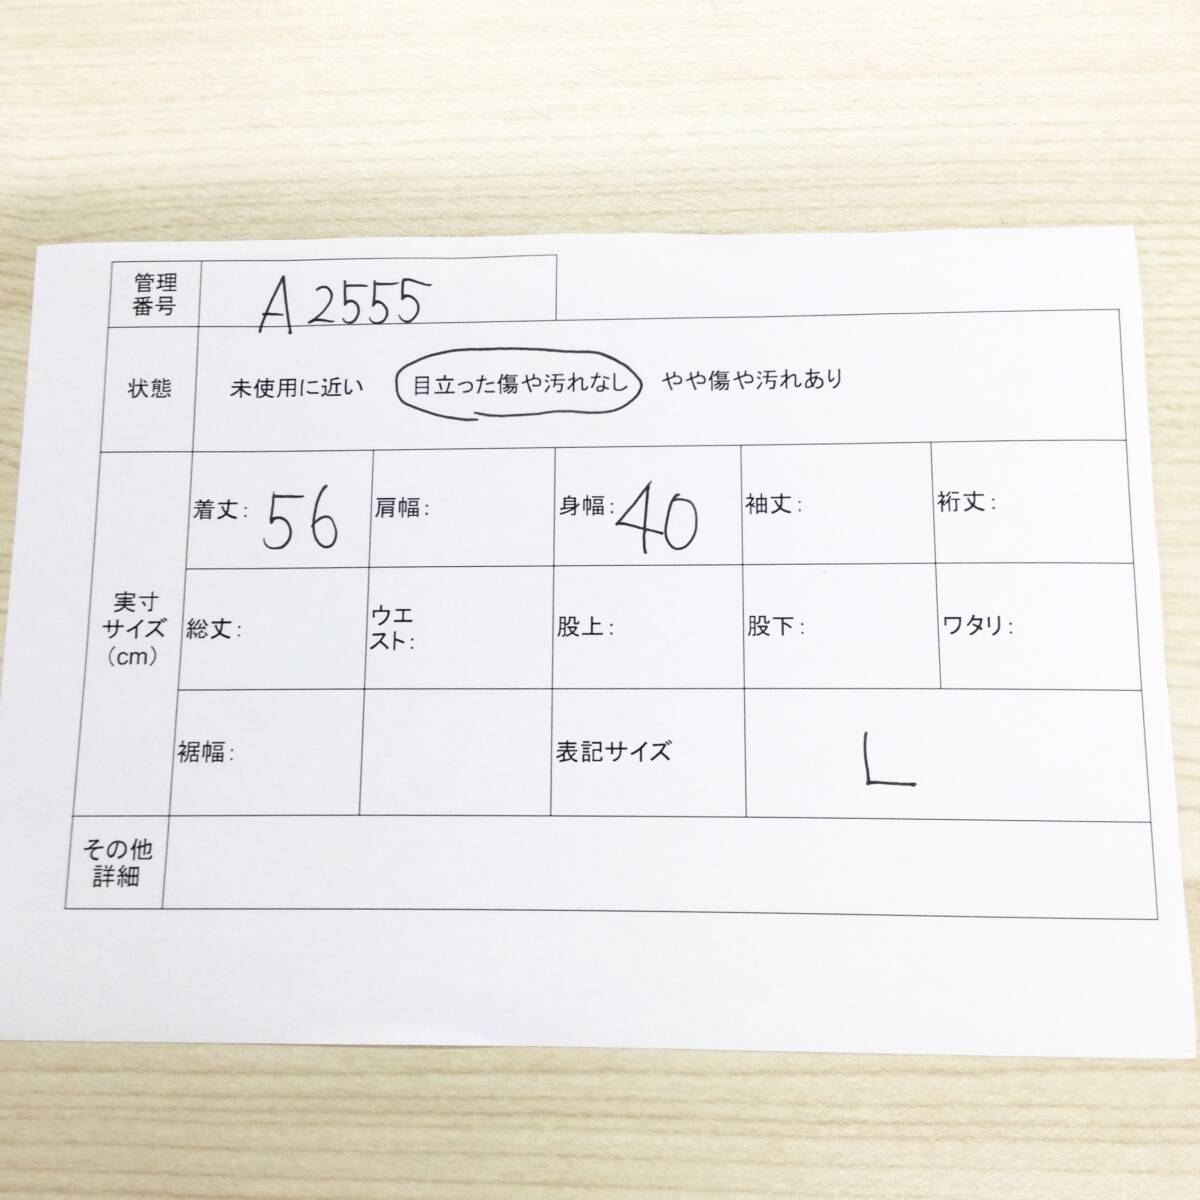 管理
番号
A2555
状態
未使用に近い 目立った傷や汚れなし やや傷や汚れあり
実寸
サイズ
（cm）
着丈: 56 肩幅: 身幅: 40 袖丈: 裄丈:
総丈: ウエ
スト: 股上: 股下: ワタリ:
裾幅: 表記サイズ L
その他
詳細